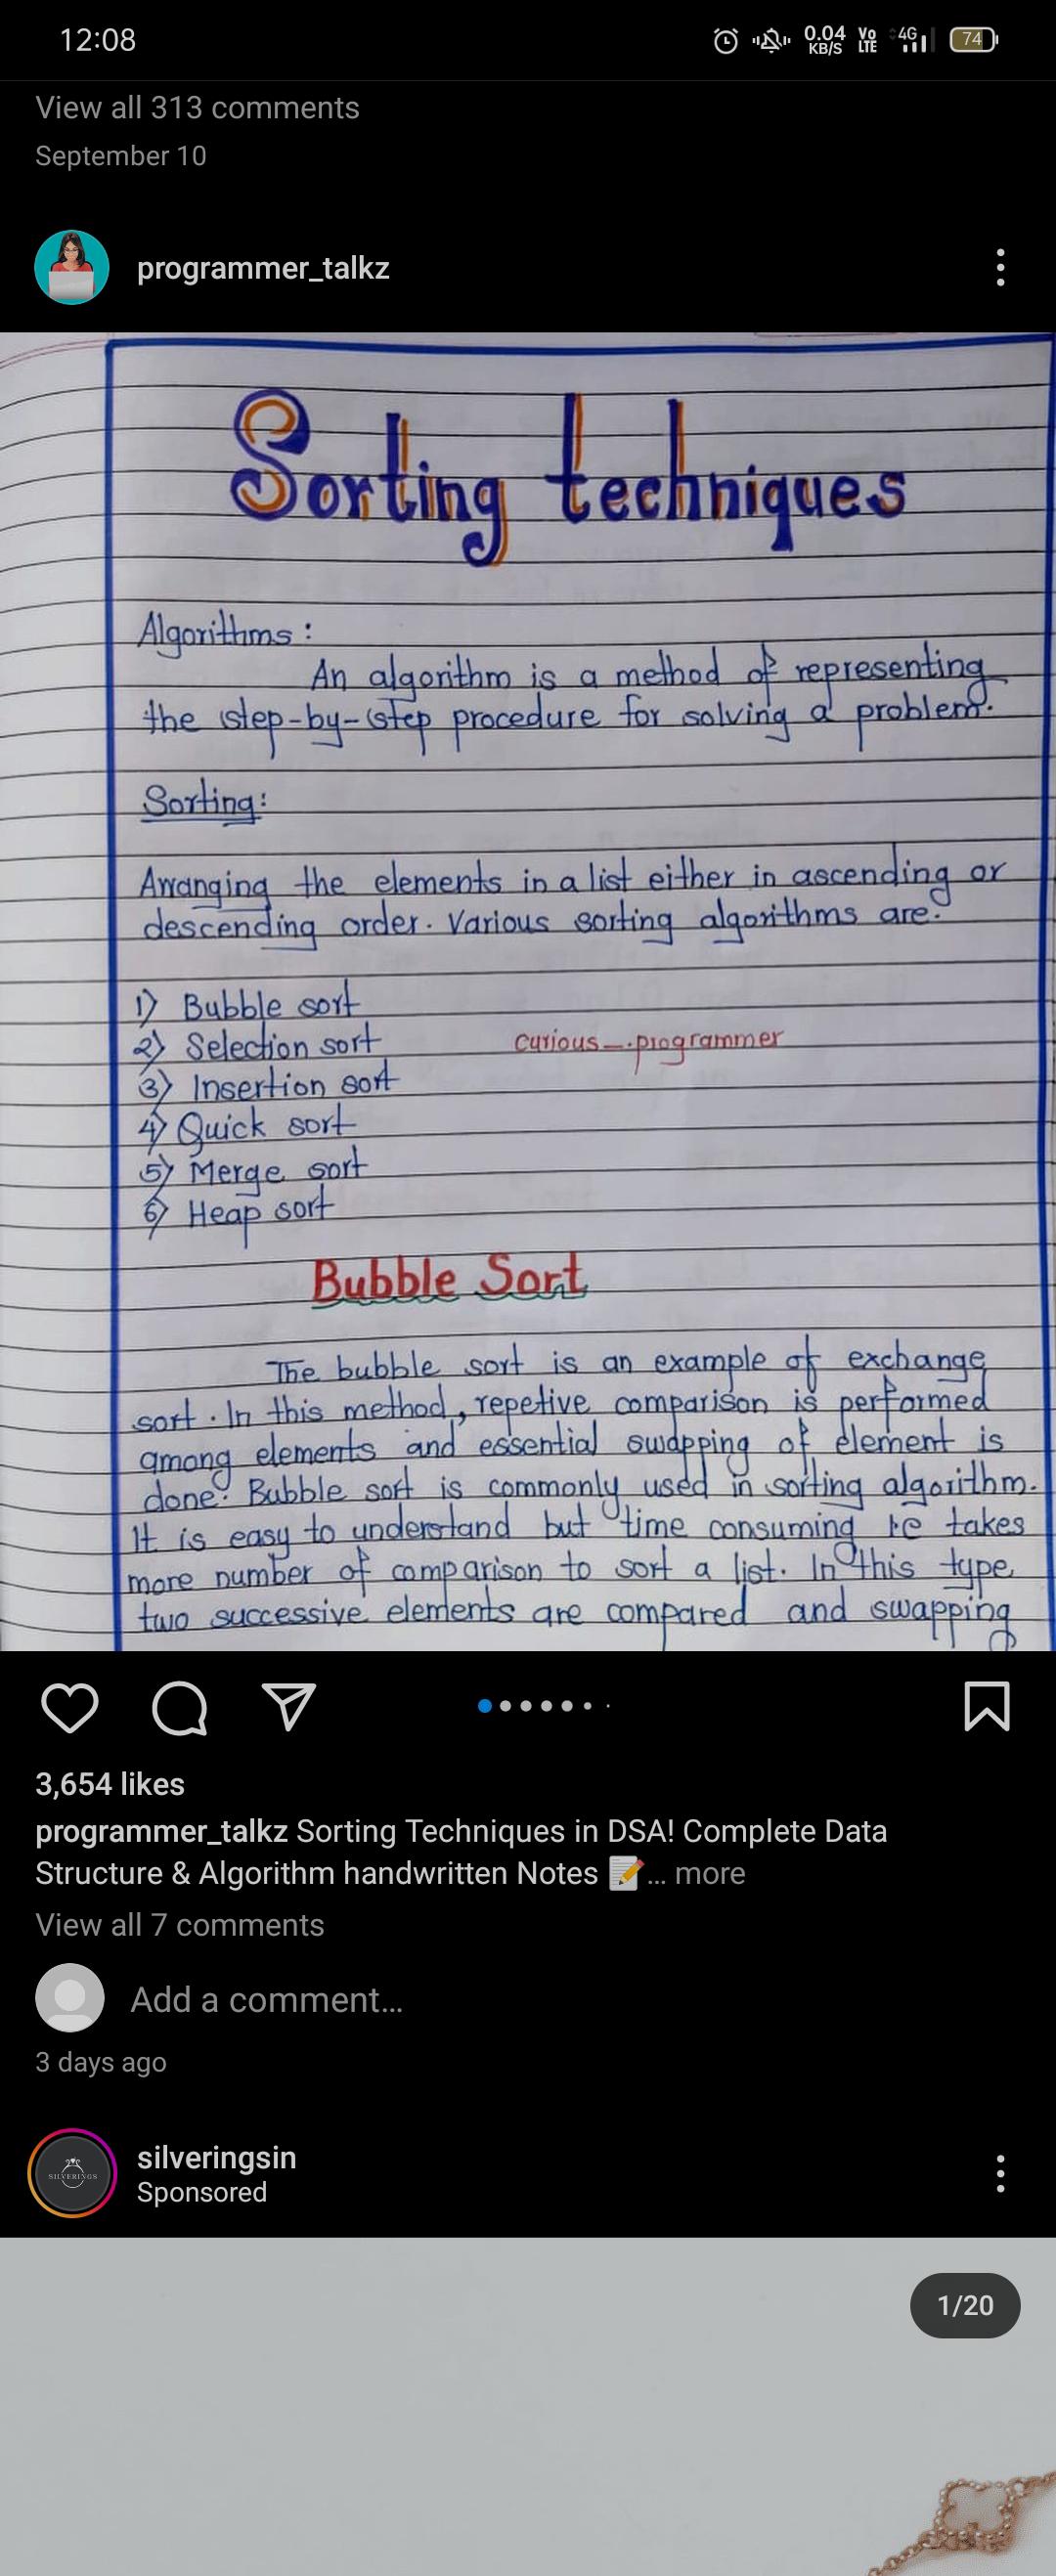 12:08
0.04 KB/S
Vo LTE
4G
74
View all 313 comments
September 10
programmer_talkz
Sorting techniques
Algorithms :
An algorithm is a method of representing
the step-by-step procedure for solving a problem.
Sorting:
Arranging the elements in a list either in ascending or
descending order. Various sorting algorithms are.
1) Bubble sort
2) Selection sort
curious_.programmer
3) Insertion sort
4) Quick sort
5) Merge sort
6) Heap sort
Bubble Sort
The bubble sort is an example of exchange
sort. In this method, repetive comparison is performed
among elements and essential swapping of element is
done. Bubble sort is commonly used in sorting algorithm.
It is easy to understand but time consuming i.e takes
more number of comparison to sort a list. In this type
two successive elements are compared and swapping
3,654 likes
programmer_talkz Sorting Techniques in DSA! Complete Data
Structure & Algorithm handwritten Notes 📝... more
View all 7 comments
Add a comment...
3 days ago
SILVERINGS
silveringsin
Sponsored
1/20